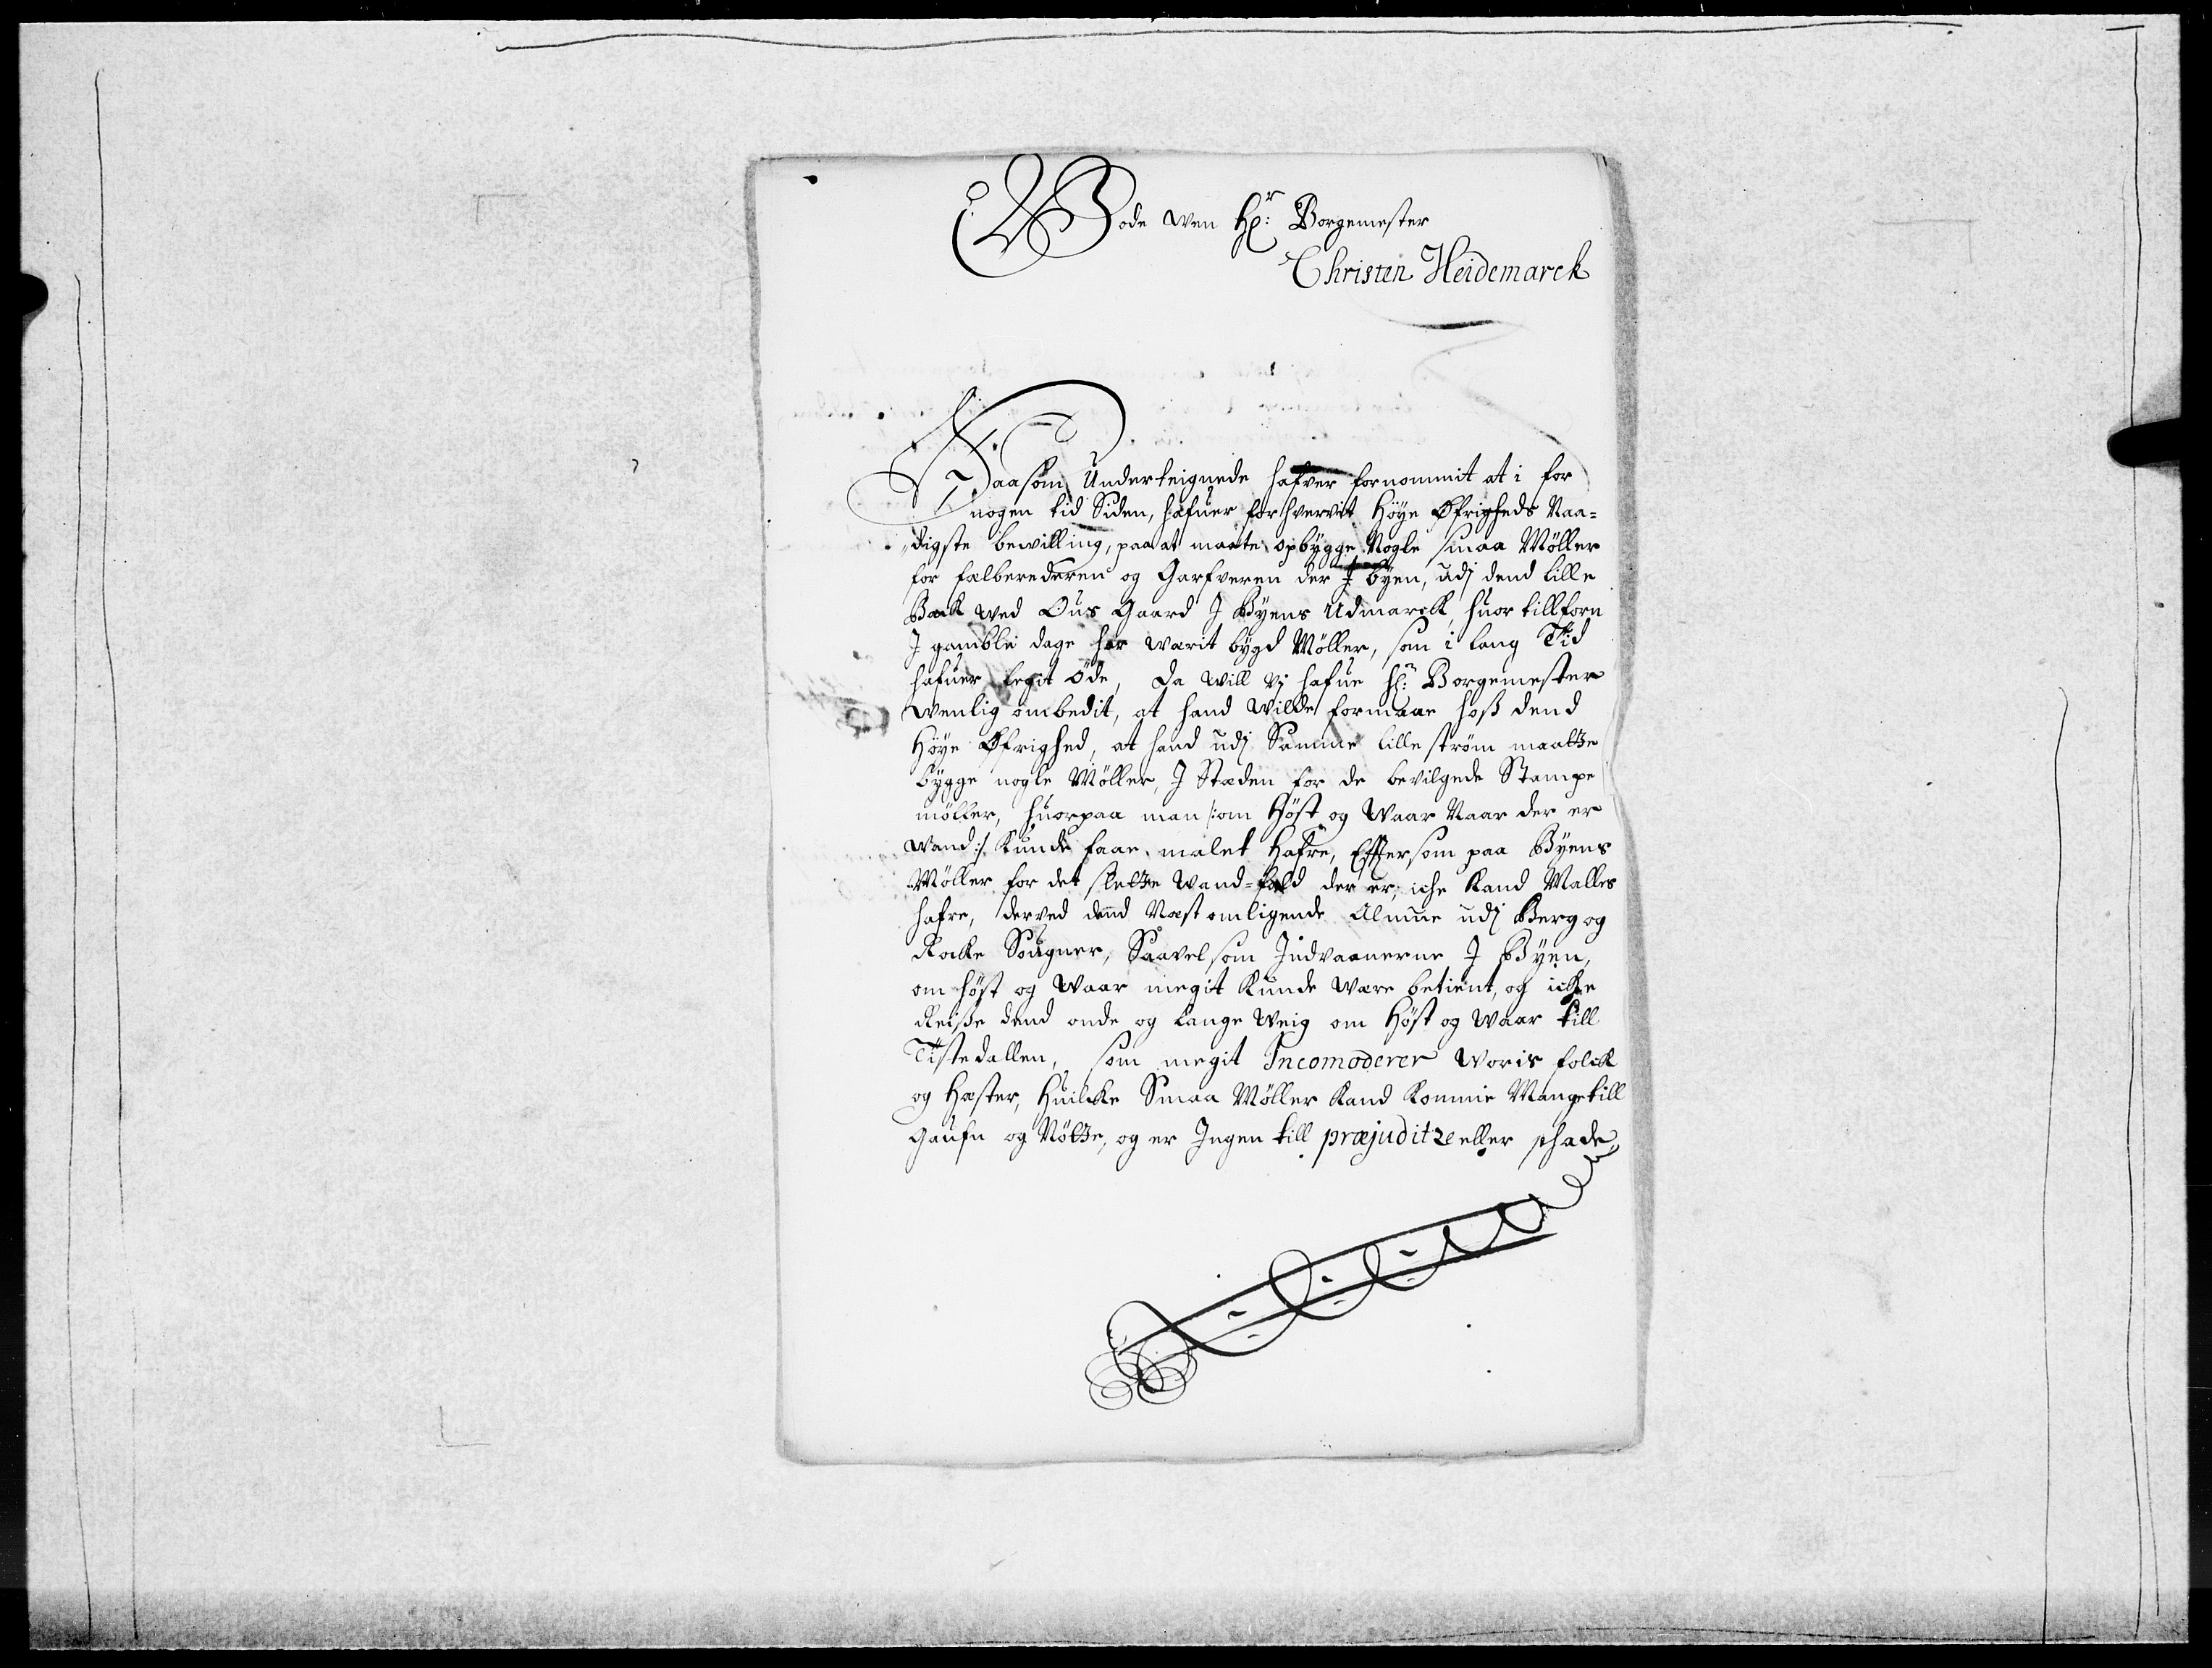 Gode wen Hr: Borgemester
Christen Heidemarck
Saasom Underteignede hafver fornommit at i for
nogen tid Siden, hafuer forhvervit Høye Øfrigheds Naa=
digste bewilling, paa at maate opbygge Nogle smaa Møller
for felberederen og Garfveren der J byen, udj dend lille
Bæk wed Ous Gaard J Byens Udmarck, huor tillforn
J gamble dage har werit bygd Møller, som i lang Tid
hafuer legit öde, da will vj hafue Hr: Borgemester
wenlig ombedit, at hand wilde formaae hoß dend
Høye Øfrighed, at hand udj Samme lille strøm maatte
bygge nogle Møller, J Stæden for de bevilgede Stampe
møller, huorpaa man /:om Høst og Waar Naar der er
wand:/ Kunde faae malet Hafre, Effersom paa Byens
Møller for det slette wand=fald der er, iche Kand Malles
hafre, derved dend Næst omligende Almue udj Berg og
Rocke Sougner, Saavelsom Indvaanerne J Byen,
om høst og Waar megit Kunde være betient, og icke
Reisse dend onde og lange Weig om Høst og Waar till
Tistedallen, som megit Incomoderer Woris folck
og Hæster, Huilcke Smaa Møller Kand Komme Mange till
Gaufn og Nøtte, og er Ingen till præjuditze eller schade,,